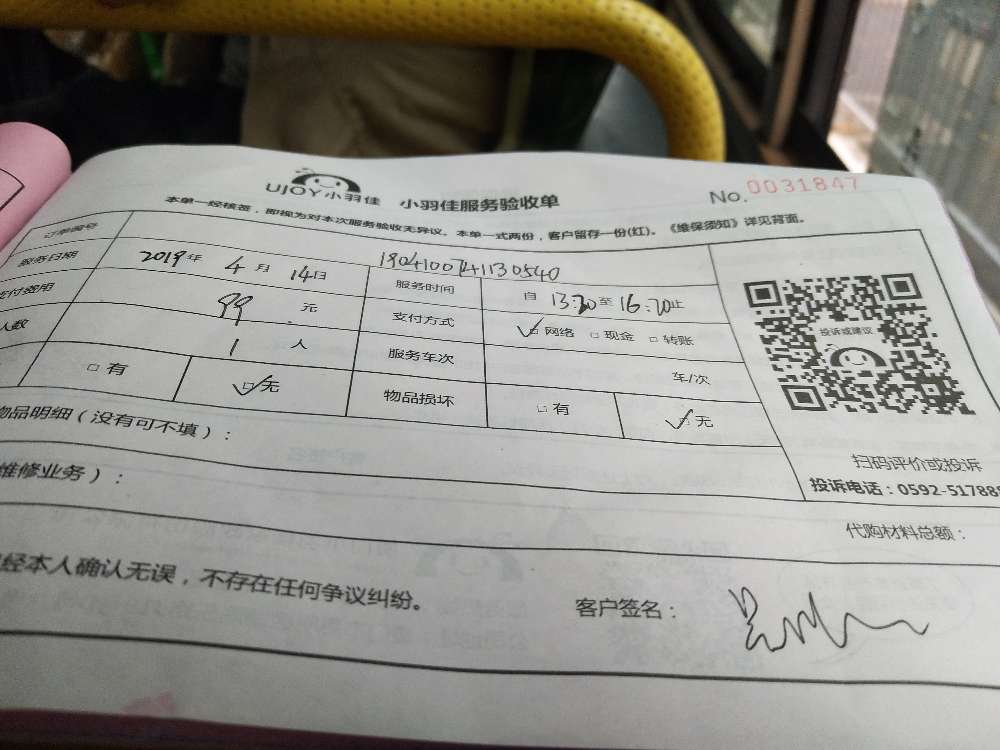 UJOY小羽佳 小羽佳服务验收单 No.0031847
本单一经核签，即视为对本次服务验收无异议。本单一式两份，客户留存一份(红)。《维保须知》详见背面。
订单编号 1904100741130540
服务日期 2019年 4月 14日 服务时间 自 13:20 至 16:20 止
支付费用 99 元 支付方式 ☑网络 □现金 □转账
人数 1 人 服务车次 车/次
□有 ☑无 物品损坏 □有 ☑无
投诉或建议
物品明细（没有可不填）：
扫码评价或投诉
维修业务）： 投诉电话：0592-51788
代购材料总额：
经本人确认无误，不存在任何争议纠纷。 客户签名：